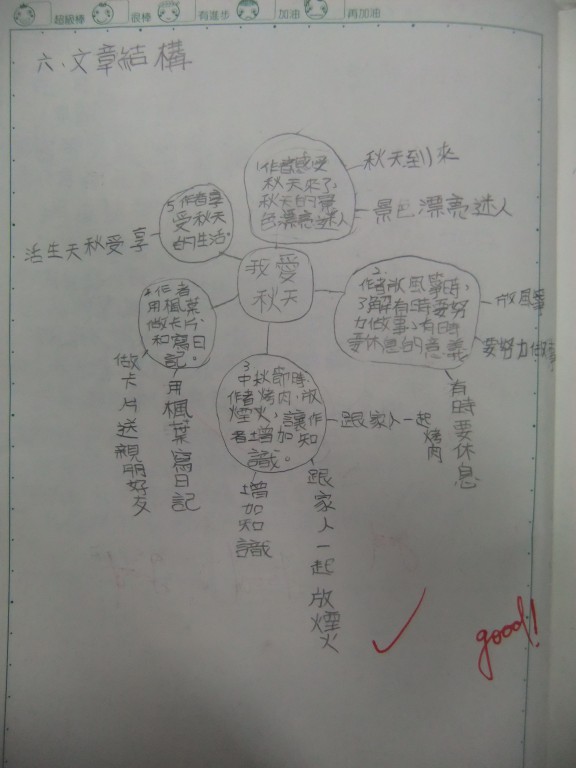 超級棒 很棒 有進步 加油 再加油
六、文章結構
我愛
秋天
1.作者感受
秋天來了,
秋天的景
色漂亮迷人
秋天到來
景色漂亮迷人
2.
作者放風箏時,
了解有時要努
力做事,有時
要休息的意義
放風箏
要努力做事
有時要休息
3.
中秋節時,
作者烤肉,放
煙火,讓作
者增加知
識。
跟家人一起
烤肉
跟家人一起放煙火
增加知識
4.作者
用楓葉
做卡片
和寫日
記。
用楓葉寫日記
做卡片送親朋好友
5.作者享
受秋天
的生活。
活生天秋受享
good!